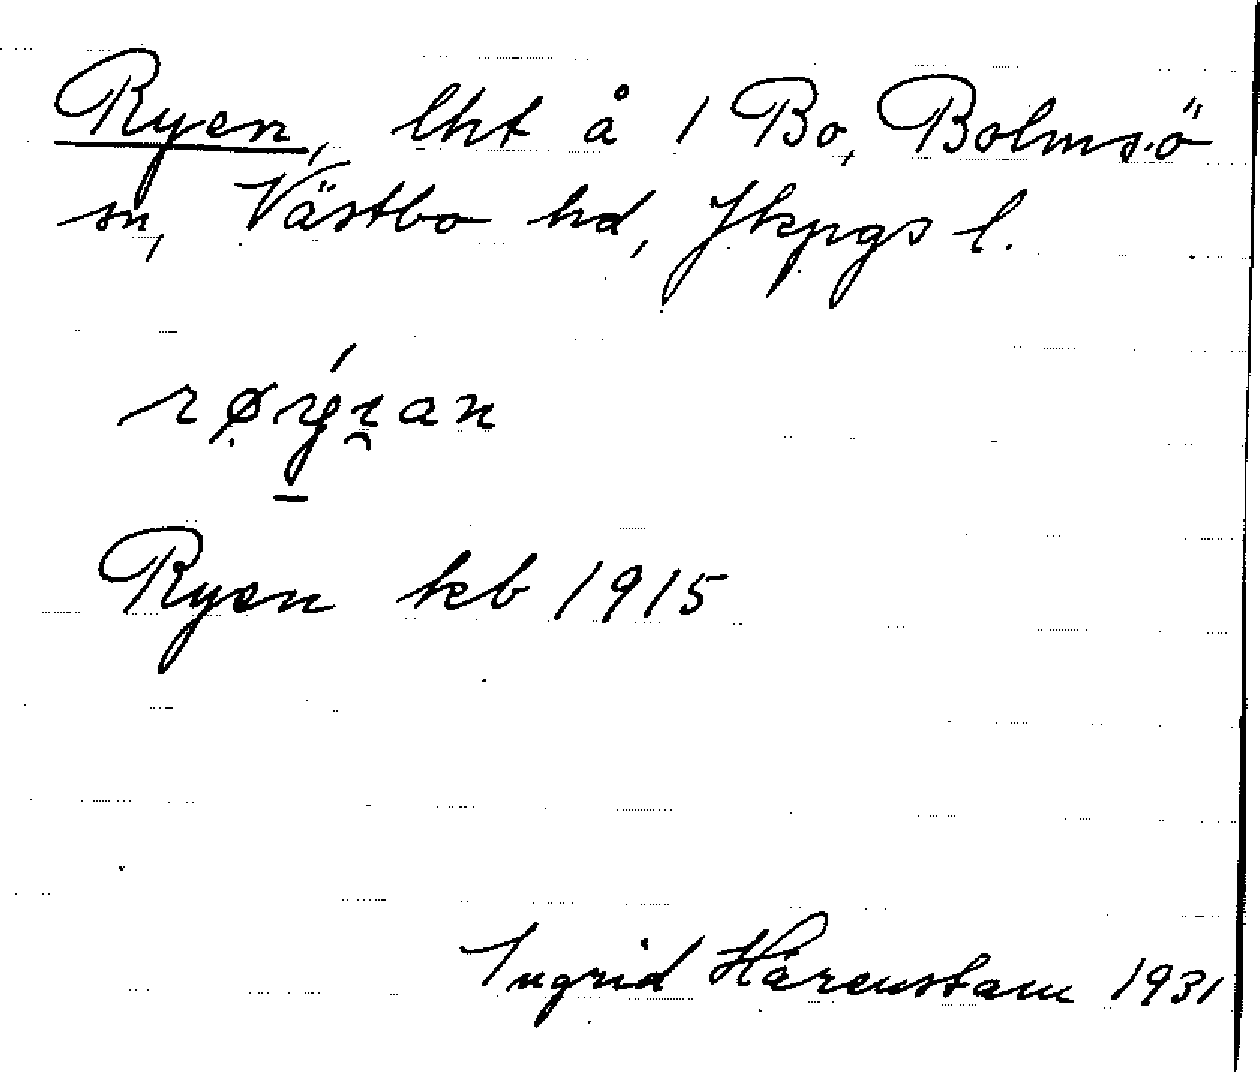 Ryen, lht å 1 Bo, Bolmsö
sn, Västbo hd, Jkpgs l.
Ryen kb 1915
Ingrid Härenstam 1931